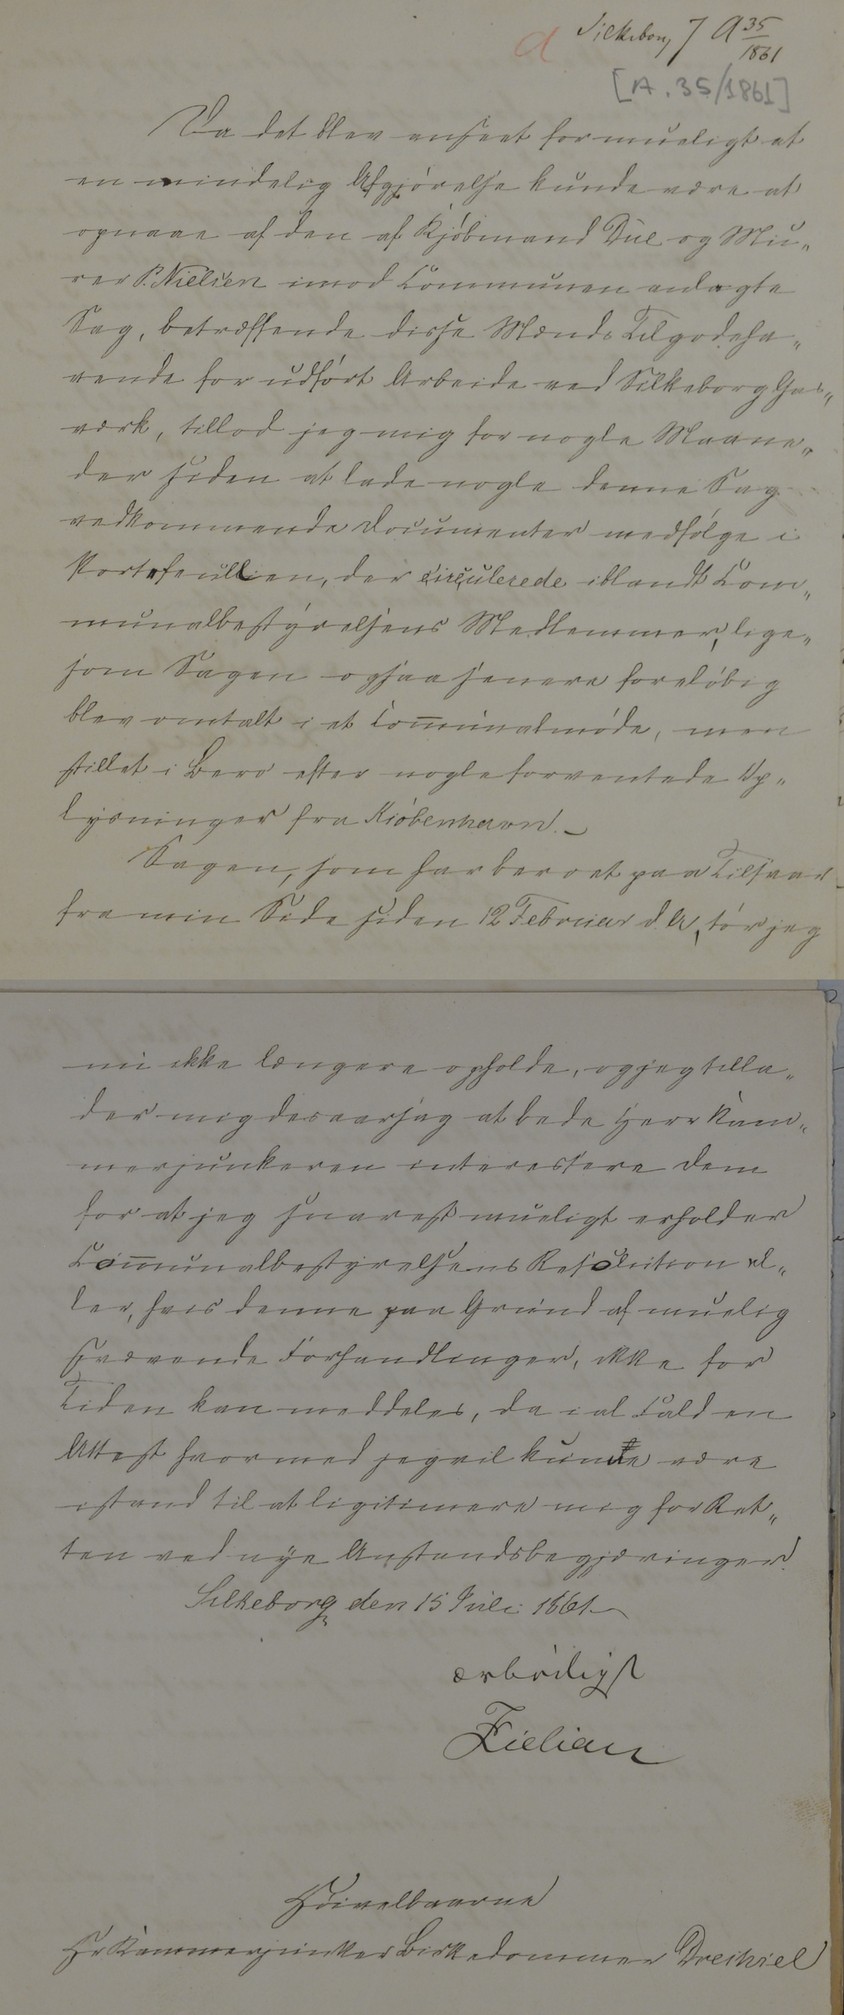 a Silkeborg 7 A 35/1861
[A. 35/1861]
Da det blev anseet for mueligt at
en mindelig Afgjörelse kunde være at
opnaae af den af Kjöbmand Due og Mu-
rer P. Nielsen imod Communen anlagte
Sag, betræffende disse Mænds Tilgodeha-
vende for udfört Arbeide ved Silkeborg Gas-
værk, tillod jeg mig for nogle Maane-
der siden at lade nogle denne Sag
vedkommende Documenter medfölge i
Portefeuillen, der circulerede iblandt Com-
munalbestyrelsens Medlemmer, lige-
som Sagen ogsaa senere forelöbig
blev omtalt i et Communalmöde, men
stillet i Bero efter nogle forventede Op-
lysninger fra Kiöbenhavn.
Sagen, som har beroet paa Tilsvar
fra min Side siden 12 Februar d. A, tör jeg
nu ikke længere opholde, og jeg tilla-
der mig desaarsag at bede Herr Kam-
merjunkeren interessere Dem
for at jeg snarest mueligt erholder
Communalbestyrelsens Resolution el-
ler, hvis denne paa Grund af muelig
svævende Forhandlinger, ikke for
Tiden kan meddeles, da i al Fald en
Attest hvormed jeg vil kunne være
istand til at legitimere mig for Ret-
ten ved nye Anstandsbegjæringer.
Silkeborg den 15 Juli 1861
ærbödigst
Høivelbaarne
Hr Kammerjunker Birkedommer Drechsel